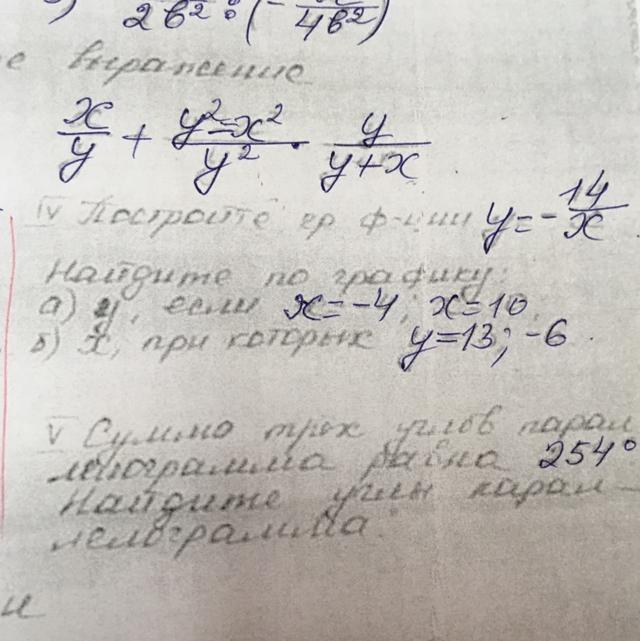 2в² : (- /4в²)
выражение
x/y + y²-x²/y² · y/y+x
IV Постройте гр ф-ции y=-14/x
Найдите по графику:
а) y, если x=-4; x=10,
б) x, при которых y=13; -6.
V Сумма трёх углов парал
лелограмма равна 254°
Найдите углы парал-
лелограмма.